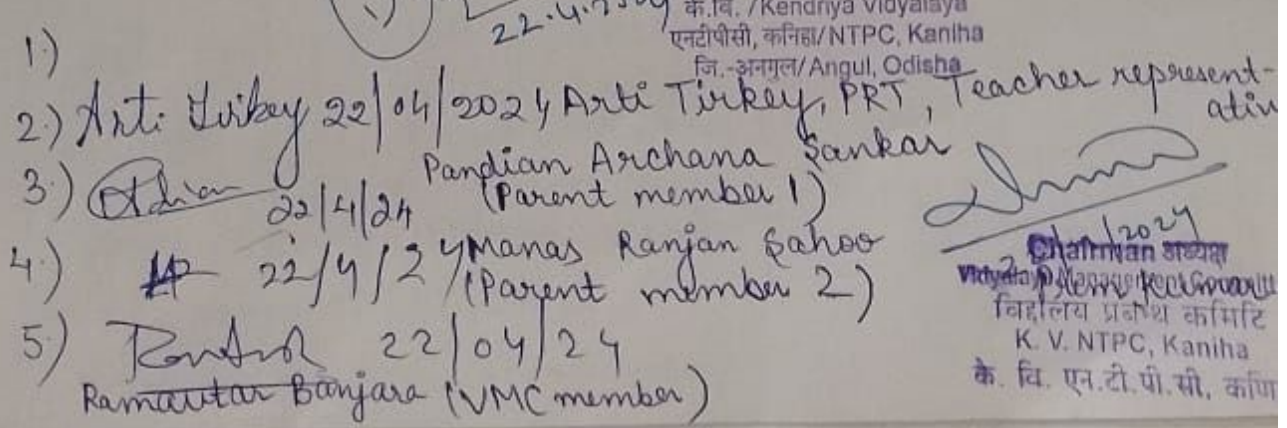 22.4.2024
के.वि. /Kendriya Vidyalaya
एनटीपीसी, कनिहा/NTPC, Kaniha
जि.-अनगुल/Angul, Odisha
1)
2) Arti Tirkey 22/04/2024 Arti Tirkey, PRT, Teacher represent-
ativ
3) 22/4/24 Pandian Archana Sankar
(Parent member 1)
4) 22/4/24 Manas Ranjan Sahoo
(Parent member 2)
5) 22/04/24
Ramautar Banjara (VMC member)
/2024
Chairman अध्यक्ष
Vidyalaya Management Committ
विद्यालय प्रबंध कमिटि
K. V. NTPC, Kaniha
के. वि. एन.टी.पी.सी, कणि